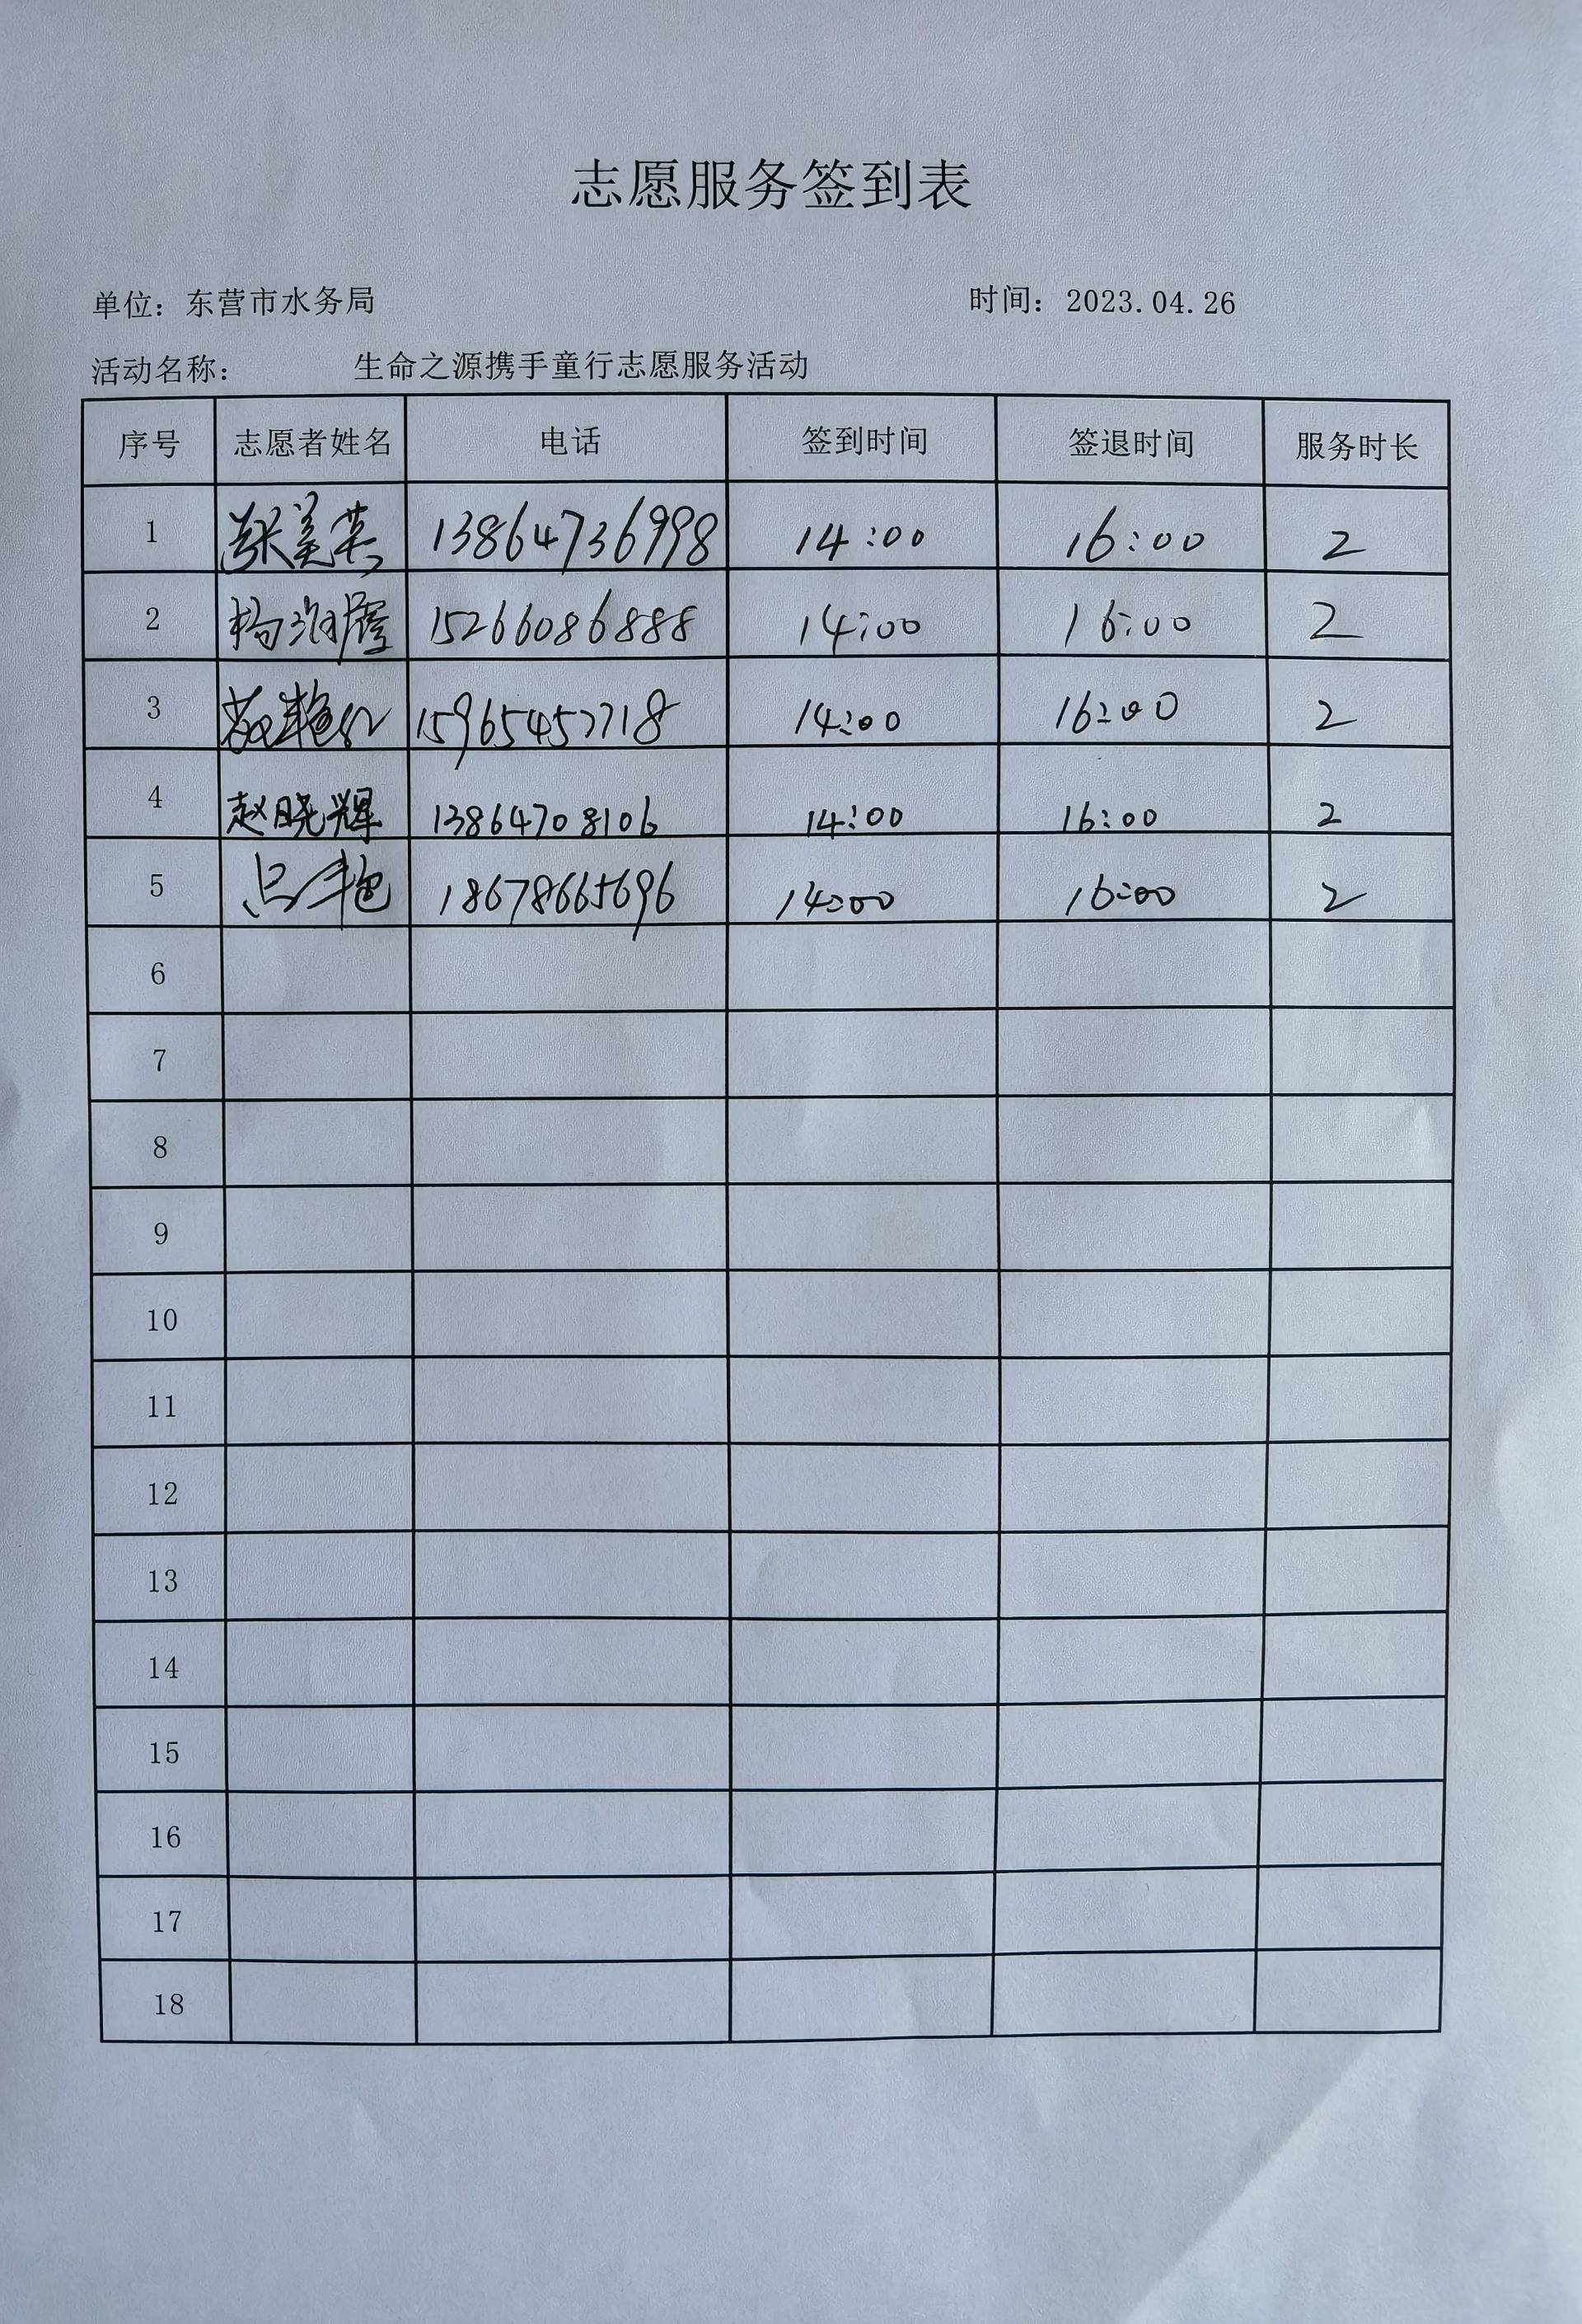 志愿服务签到表
单位：东营市水务局 时间：2023.04.26
活动名称： 生命之源携手童行志愿服务活动
序号 志愿者姓名 电话 签到时间 签退时间 服务时长
1 张美英 13864736998 14:00 16:00 2
2 杨润霞 15266086888 14:00 16:00 2
3 15965457718 14:00 16:00 2
4 赵晓辉 13864708106 14:00 16:00 2
5 吕艳 18678665696 14:00 16:00 2
6
7
8
9
10
11
12
13
14
15
16
17
18